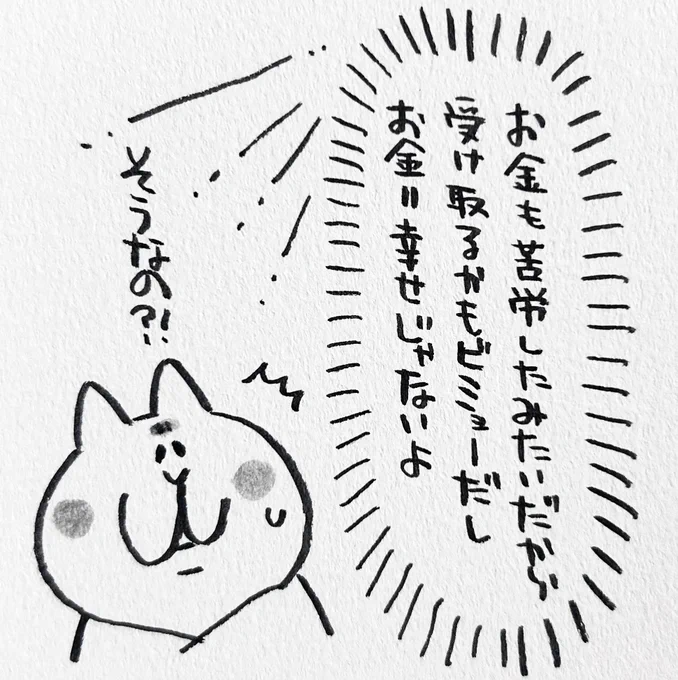 お金も苦労したみたいだから
受け取るかもビミョーだし
お金＝幸せじゃないよ
そうなの?!